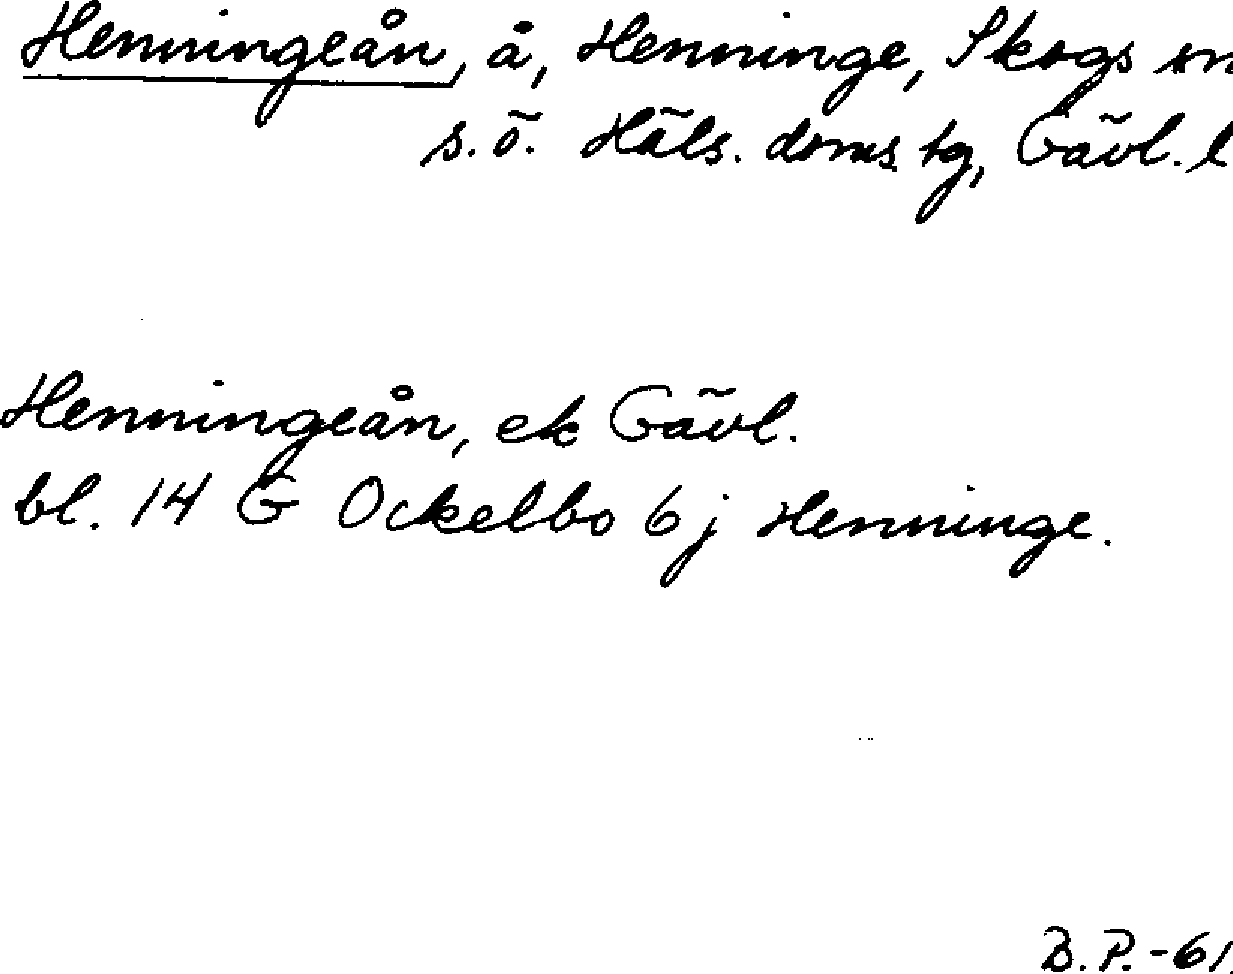 Henningeån, å, Henninge, Skogs sn
s.ö. Häls. doms.tg, Gävl. l
Henningeån, ek Gävl.
bl. 14 G Ockelbo 6 j Henninge.
B.P.-61.